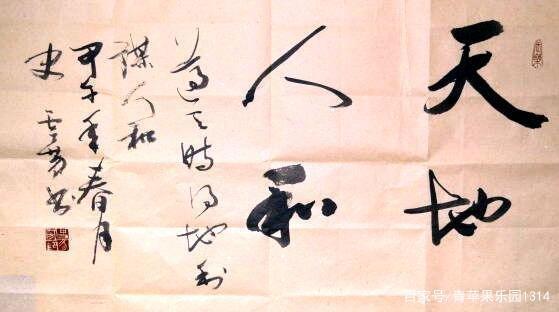 天地
人和
遵天時得地利
谋人和
甲午年春月
史
书
百家号/青苹果乐园1314